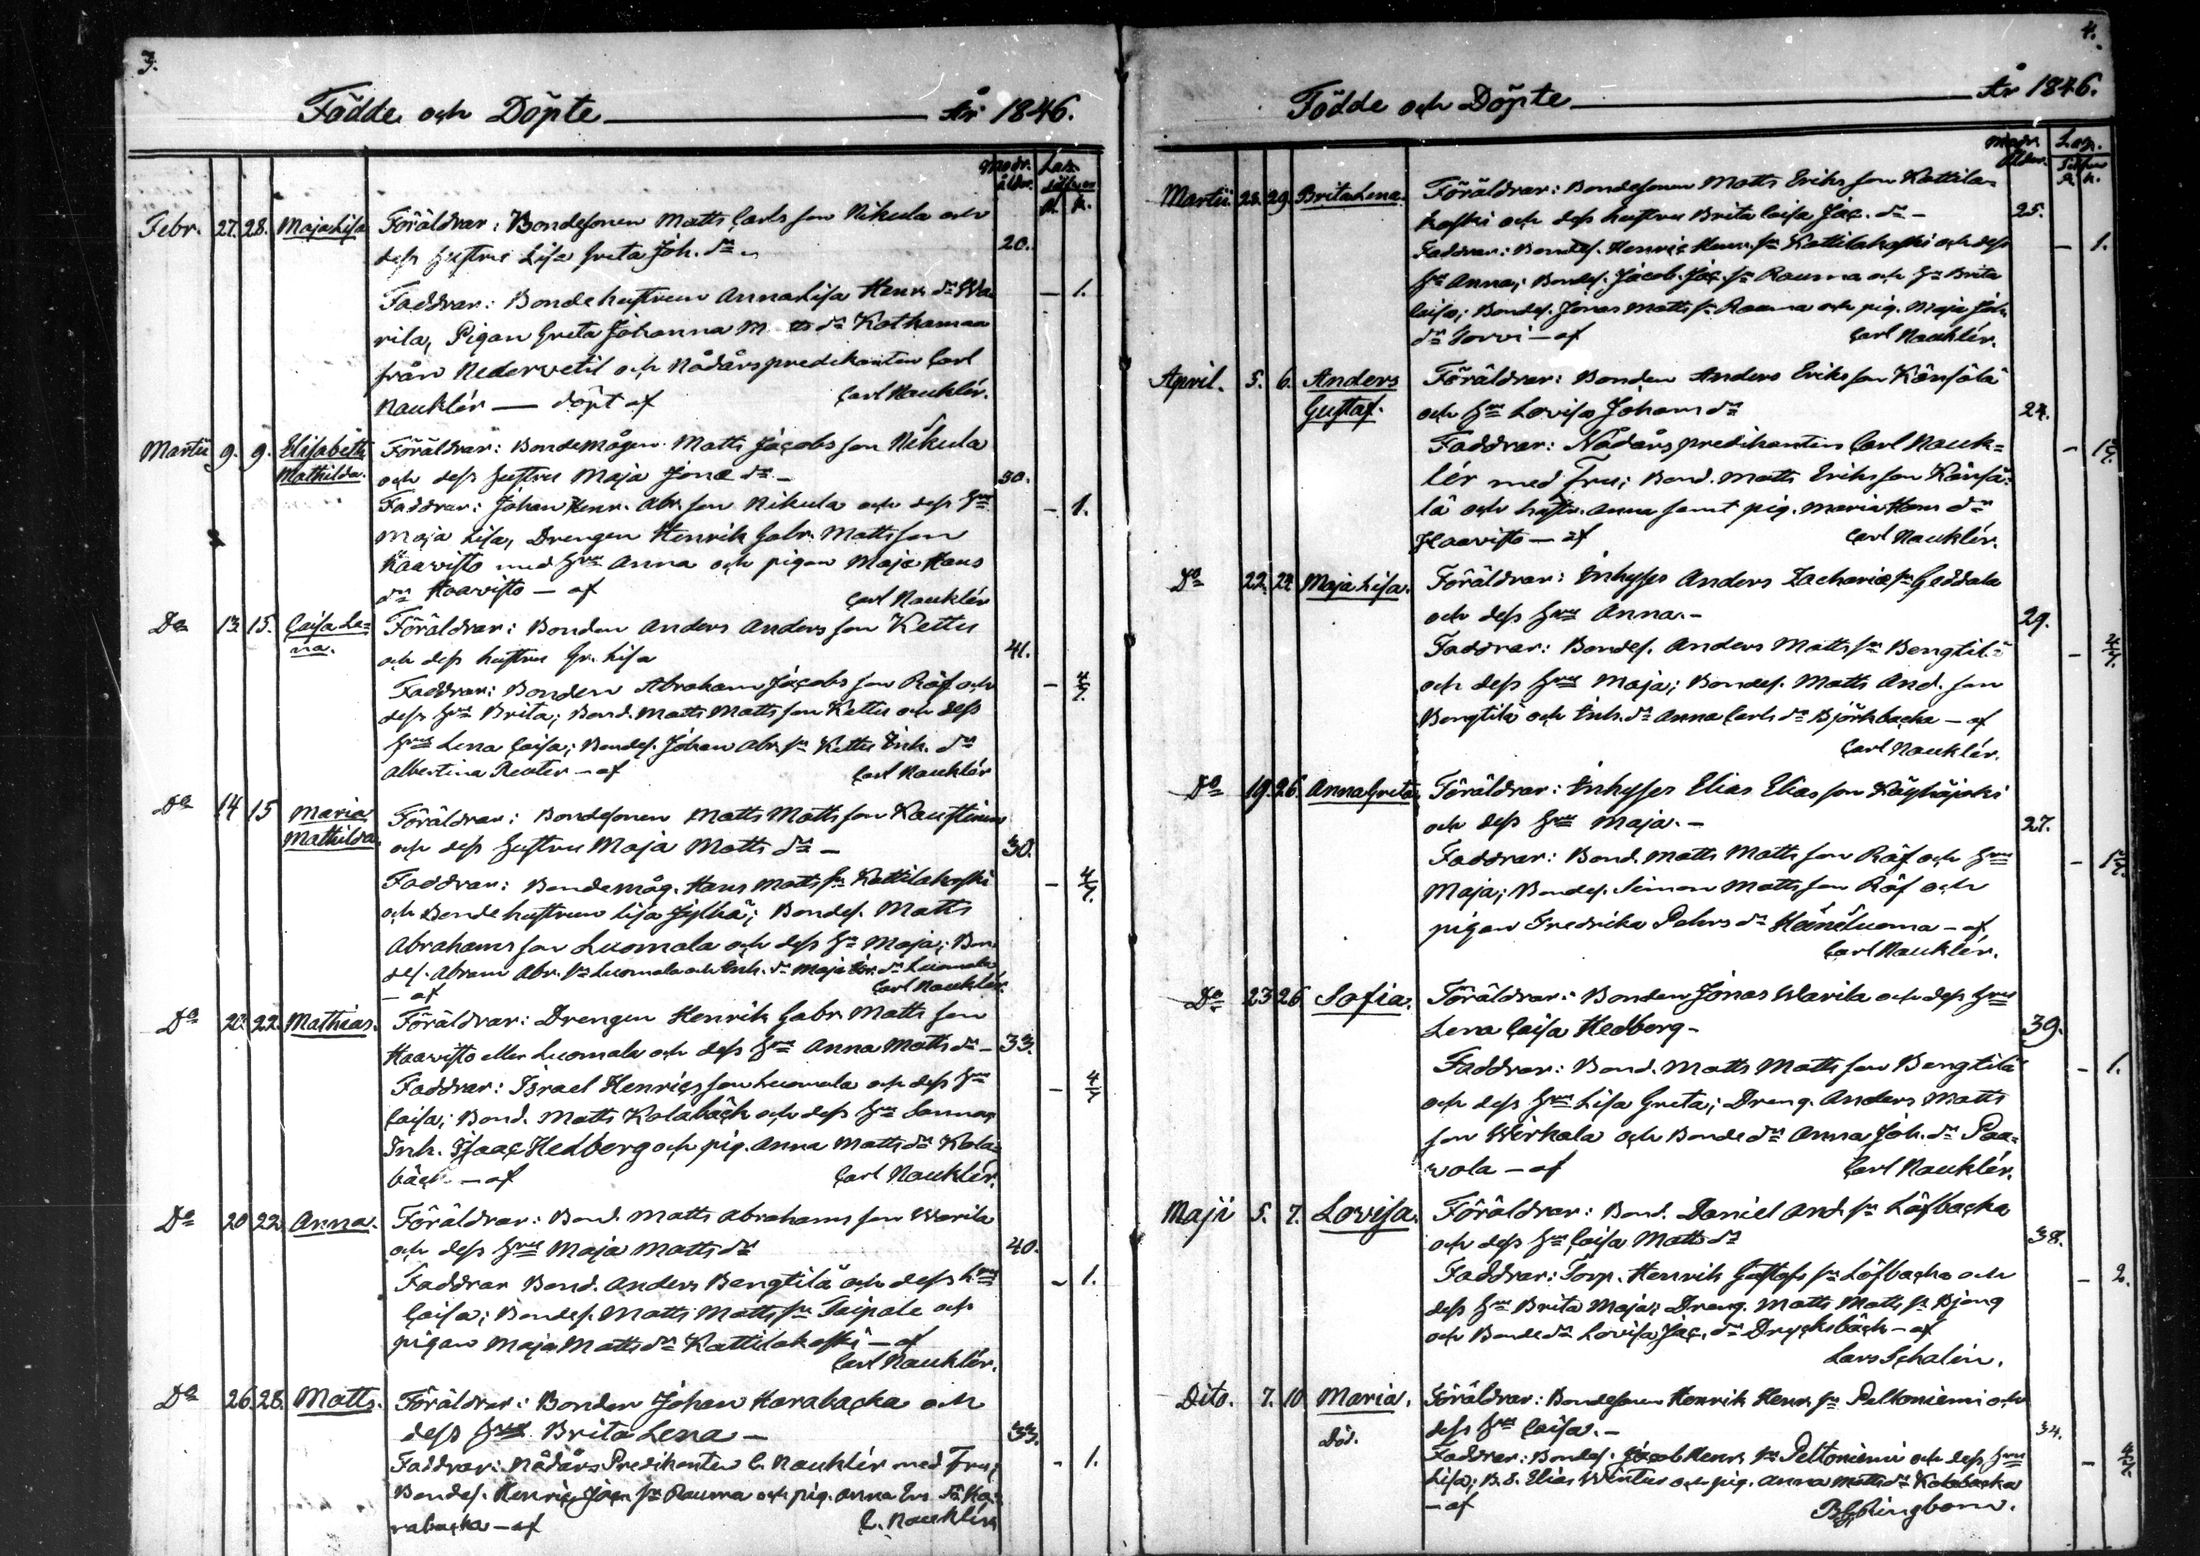 3.
Födde och Döpte År 1846.
Modr. ålder. Lös.
Silfver
R. k.
Febr. 27. 28. Maja Lisa Föräldrar: Bondesonen Matts Carls son Nikula och
dess hustru Lisa Greta Joh. dr 20.
Faddrar: Bondehustrun Anna Lisa Henr. dr Wa- – 1.
rila, Pigan Greta Johanna M tts dr Kothamaa
från Nedervetil och Nådårspredikanten Carl
Nauklér — döpt af Carl Nauklér.
Martii 9. 9. Elisabeth Föräldrar: Bondemågen Matts Jacobs son Nikula
Mathilda. och dess hustru Maja Jonæ dr – 30.
Faddrar: Johan Henr. Abr. son Nikula och dess hru – 1.
Maja Lisa, Drengen Henrik Gabr. Matts son
Haavisto med hru Anna och pigan Maja Hans
dr Haavisto – af Carl Nauklér
Do 13. 15. Caisa Le- Föräldrar: Bonden Anders Anders son Kettu
na. och dess hustru Gr. Lisa 41.
Faddrar: Bonden Abraham Jacobs son Räf och – 4/7.
dess hru Brita; Bond. Matts Matts son Kettu och dess
hru Lena Caisa; Bondes. Johan Abr. sn Kettu Inh. dr
Albertina Reuter – af Carl Nauklér
Do 14 15 Maria Föräldrar: Bondesonen Matts Matts son Kaustinen
Mathilda. och dess hustru Maja Matts dr – 30.
Faddrar: Bondemåg. Hans Matts sn Kattilakoski – 4/7.
och Bondehustrun Lisa Jylhä; Bondes. Matts
Abrahams son Luomala och dess hru Maja; Bon
des. Abram Abr. sn Luomala och Inh. dr Maja Er. dr Luomala
– af Carl Nauklér.
Do 20. 22. Mathias. Föräldrar: Drengen Henrik Gabr. Matts son
Haavisto eller Luomala och dess hru Anna Matts dr – 33.
Faddrar: Israel Henrics son Luomala och dess hru – 4/7
Caisa; Bond. Matts Kalabäck och dess hru Sanna;
Inh. Isaac Hedberg och pig. Anna Matts dr Kala-
bäck – af Carl Nauklér.
Do 20 22. Anna. Föräldrar: Bond. Matts Abrahams son Warila
och dess hru Maja Matts dr 40.
Faddrar Bond. Anders Bengtilä och dess hru – 1.
Caisa; Bondes. Matts Matts sn Taipale och
pigan Maja Matts dr Kattilakoski – af
Carl Nauklér.
Do 26. 28. Matts. Föräldrar: Bonden Johan Harabacka och
dess hru Brita Lena – 33.
Faddrar: Nådårs Predikanten C. Nauklér med Fru; – 1.
Bondes. Henric Jac. sn Rauma och pig. Anna Er. dr Ha-
rabacka – af C. Nauklér
4.
Födde och Döpte År 1846.
Modr. ålder. Lös.
Silfver
R. k.
Martii 28. 29. Brita Lena. Föräldrar: Bondesonen Matts Eriks son Kattila-
koski och dess hustru Brita Caisa Jac. dr – 25.
Faddrar: Bondes. Henric Henr. sn Kattilakoski och dess – 1.
hru Anna; Bondes. Jacob Jac. sn Rauma och hru Brita
Caisa; Bondes. Jonas Matts sn Rauma och pig. Maja Joh.
dr Torvi – af Carl Nauklér.
April. 5. 6. Anders Föräldrar: Bonden Anders Eriks son Känsälä
Gustaf. och hru Lovisa Johans dr 24.
Faddrar: Nådårspredikanten Carl Nauk-
lér med Fru; Bond. Matts Eriks son Känsä-
lä och hustr. Anna samt pig. Maria Hans dr
Haavisto – af Carl Nauklér.
Do 22. 24. Maja Lisa. Föräldrar: Inhyses Anders Zachariæ sn Geddala
och dess hru Anna. – 29.
Faddrar: Bondes. Anders Matts sn Bengtilä – 4/7.
och dess hru Maja; Bondes. Matts And. son
Bengtilä och Inh. dr Anna Carls dr Björkbacka – af
Carl Nauklér.
Do 19. 26. Anna Greta. Föräldrar: Inhyses Elias Elias son Käyhäjoki
och dess hru Maja. – 27.
Faddrar: Bond. Matts Matts son Räf och hru
Maja; Bondes. Simon Matts son Räf och
pigan Fredrika Peters dr Häneluoma – af
Carl Nauklér.
Do 23 26 Sofia. Föräldrar: Bonden Jonas Warila och dess hru
Lena Caisa Hedberg – 39.
Faddrar: Bond. Matts Matts son Bengtilä – 1.
och dess hru Lisa Greta; Dreng. Anders Matts
son Wirkala och Bonde dr Anna Joh. dr Paa-
vola – af Carl Nauklér.
Maji 5. 7. Lovisa. Föräldrar: Bond. Daniel And. sn Löfbacka
och dess hru Caisa Matts dr 38.
Faddrar: Torp. Henrik Gustafs sn Löfbacka och – 2.
dess hru Brita Maja; Dreng. Matts Matts sn Bjong
och Bonde dr Lovisa Jac. dr Drycksbäck – af
Lars Schalin.
Dito. 7. 10 Maria. Föräldrar: Bondesonen Henrik Henr. sn Peltoniemi och
död. dess hru Caisa. – 34.
Faddrar: Bondes. Jacob Henr. sn Peltoniemi och dess hru – 4/7.
Lisa; B. S. Elias Wintus och pig. Anna Matts dr Kalabacka
– af Ringbom.